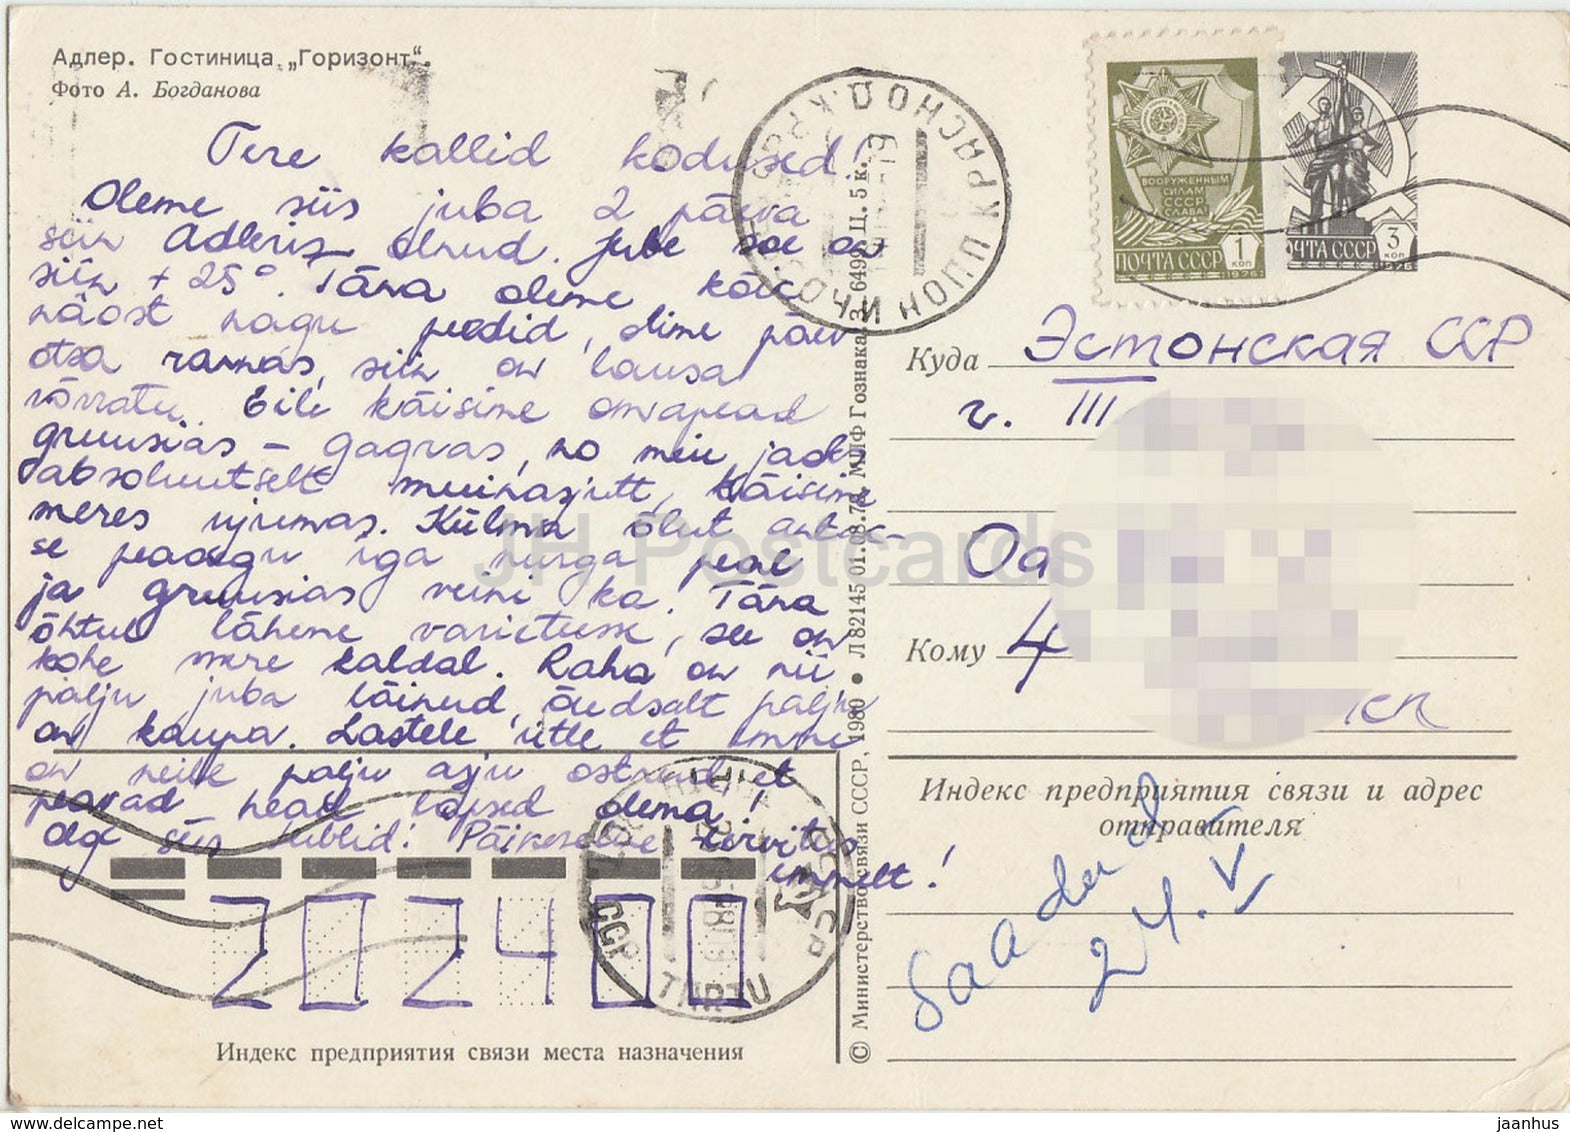 Адлер. Гостиница „Горизонт“.
Фото А. Богданова
Tere kallid kodused!
Oleme siis juba 2 päeva
siin Adleris olnud. Jube soe on
siin +25°. Täna oleme kõik
näost nagu peedid, olime päev
otsa rannas, siin on lausa
võrratu. Eile käisime omapead
gruusias – gagras, no meil jadi
absoluutselt muinasjutt, käisime
meres ujumas. Külma õlut antak-
se peaaegu iga nurga peal
ja gruusias veini ka. Täna
õhtul lähene varieteesse, see on
kohe mere kaldal. Raha on nii
palju juba läinud, õudsalt palju
on kaupa. Lastele ütle et emme
on neile palju asju ostnud et
peavad head lapsed olema!
Olge siis tublid! Päikeselise tervitus
emmelt!
ПОЧТА СССР 1 коп 1976
ВООРУЖЕННЫМ СИЛАМ СССР СЛАВА!
ПОЧТА СССР 3 коп 1976
КРАСНОД. КР.
TARTU
Куда Эстонская ССР
г. III
Оа
Кому 4
Индекс предприятия связи и адрес
отправителя
Saadud
24. V
202400
Индекс предприятия связи места назначения
© Министерство связи СССР, 1980 • Л 82145 01.08.79. МПФ Гознака. З. 6499 Ц. 5 к.
JH Postcards
www.delcampe.net
jaanhus